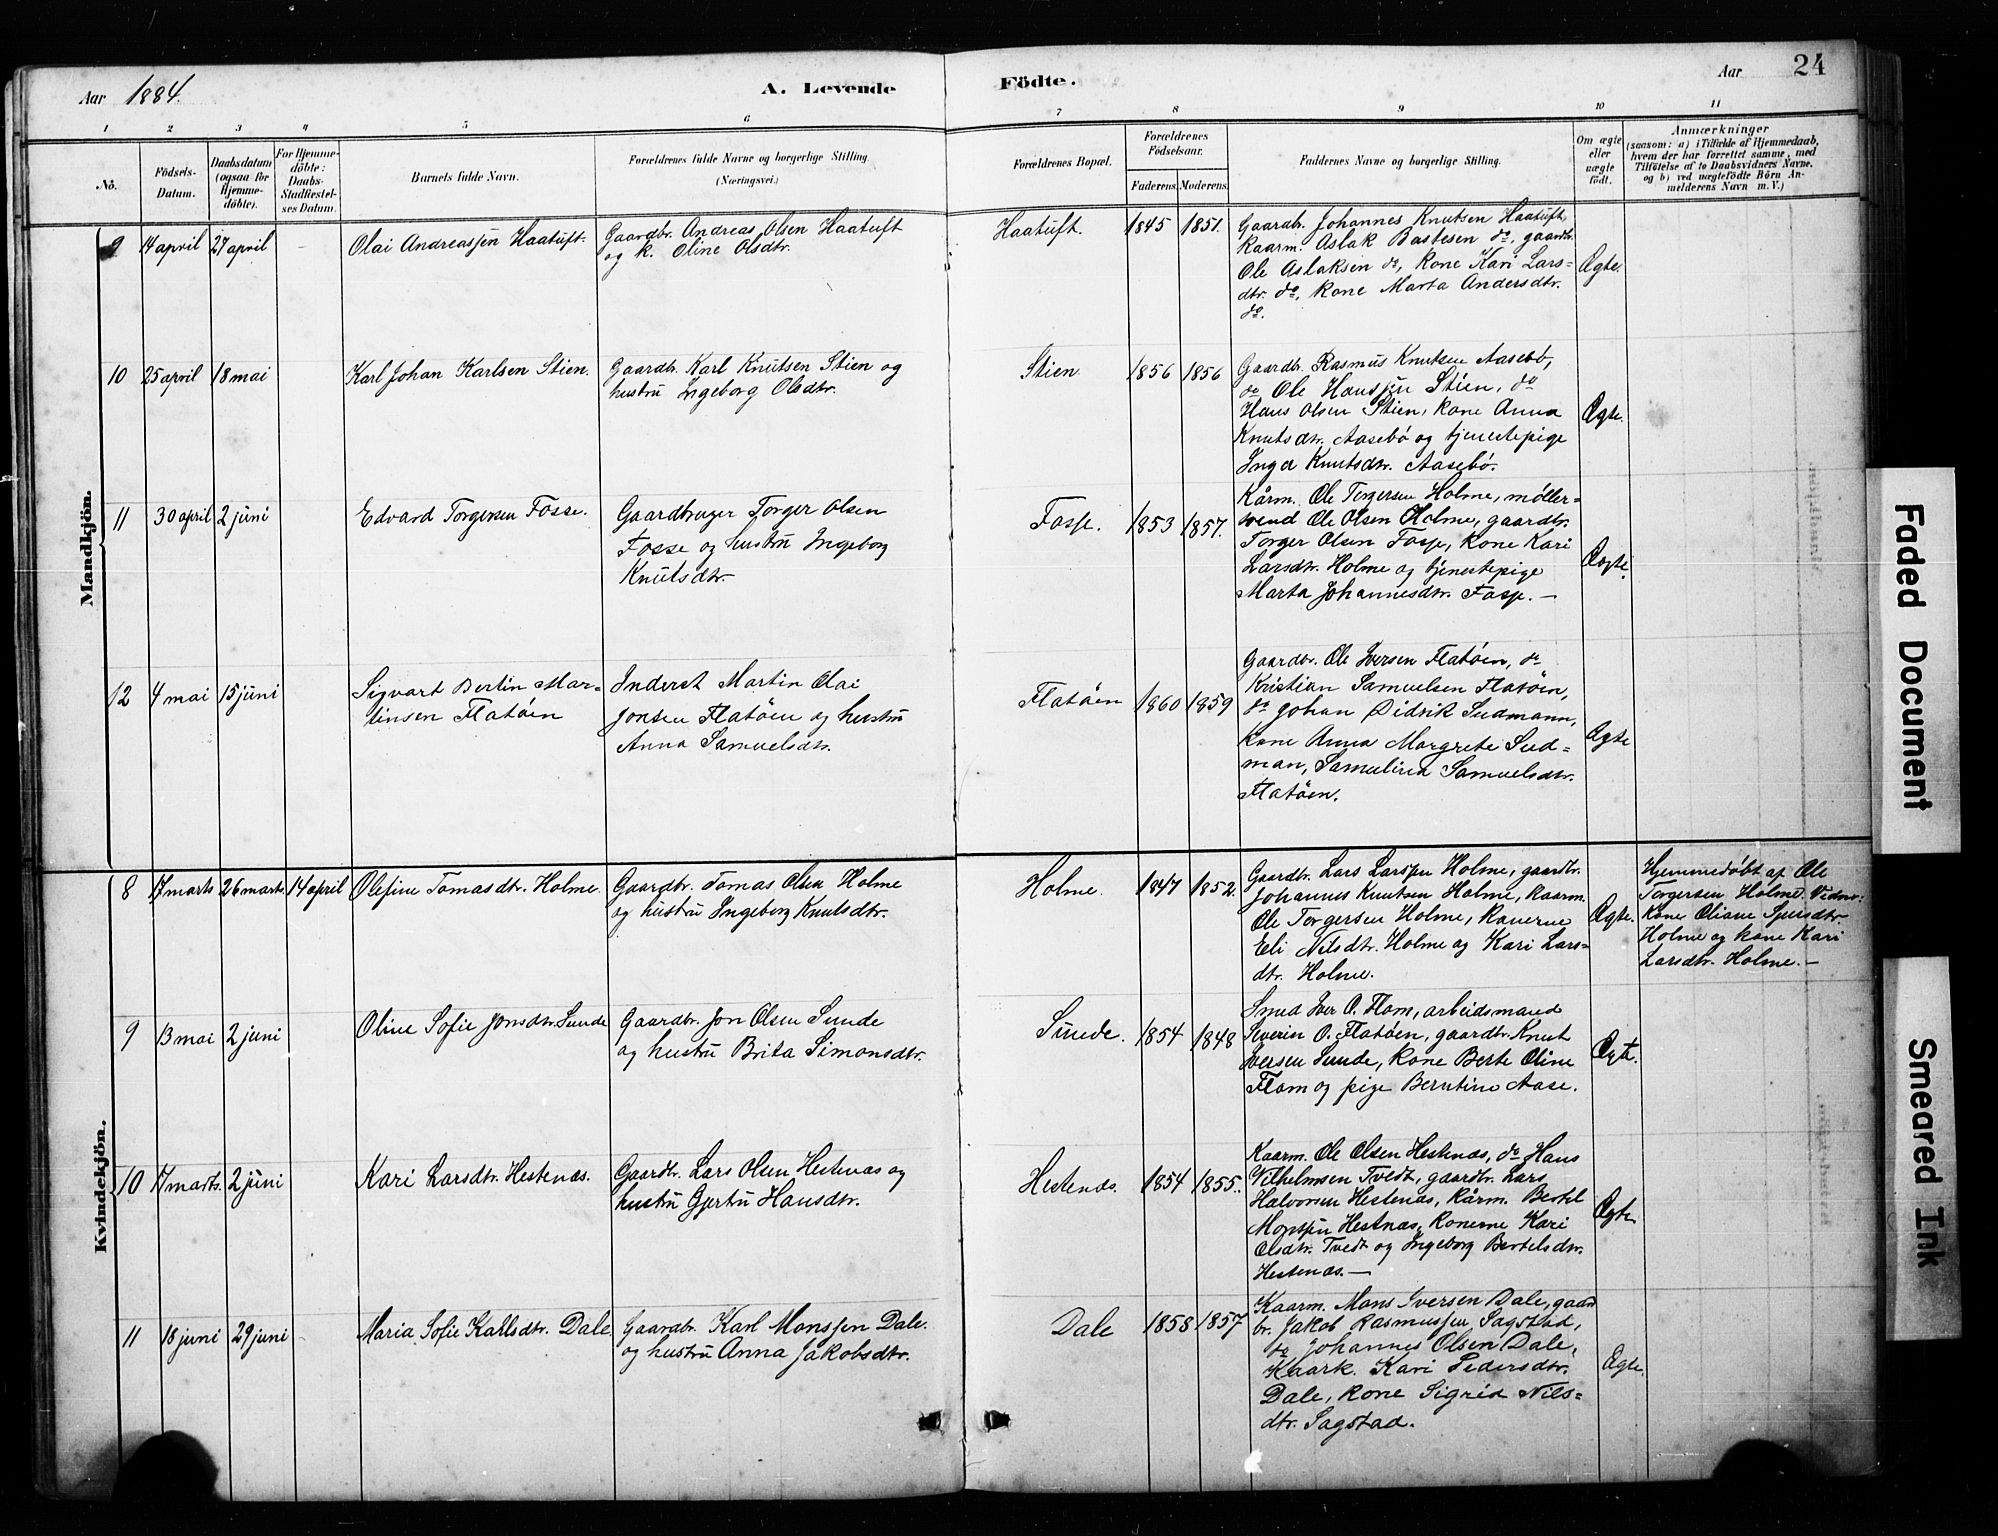 Aar 1884. A. Levende Födte. Aar 24
1 2 3 4 5 6 7 8 9 10 11
No.
Födsels-
Datum.
Daabsdatum
(ogsaa for
Hjemme-
döbte).
For Hjemme-
döbte:
Daabs-
Stadfestel-
ses Datum.
Barnets fulde Navn.
Forældrenes fulde Navne og borgerlige Stilling.
(Næringsvei.)
Forældrenes Bopæl.
Forældrenes
Födselsaar.
Faderens. Moderens.
Faddernes Navne og borgerlige Stilling.
Om ægte
eller
uægte
födt.
Anmærkninger
(saasom: a) i Tilfælde af Hjemmedaab,
hvem der har forrettet samme, med
Tilföielse af to Daabsvidners Navne,
og b) ved uægtefödte Börn An-
melderens Navn m. V.)
Mandkjön.
9 14 april 27 april Olai Andreassen Haatuft.
Gaardbr. Andreas Olsen Haatuft
og k. Oline Olsdtr.
Haatuft. 1845 1851.
Gaardbr. Johannes Knutsen Haatuft,
Kaarm. Aslak Bastesen do, gaardbr.
Ole Aslaksen do, Kone Kari Lars=
dtr. do, Kone Marta Andersdtr.
do.
Ægte.
10 25 april 18 mai Karl Johan Karlsen Stien.
Gaardbr. Karl Knutsen Stien og
hustru Ingeborg Olsdtr.
Stien 1856 1856
Gaardbr. Rasmus Knutsen Aasebö,
do Ole Hanssen Stien, do
Hans Olsen Stien, Kone Anna
Knutsdtr. Aasebö og tjenestepige
Inga Knutsdtr. Aasebö.
Ægte.
11 30 april 2 juni Edvard Torgersen Fosse.
Gaardbruger Torger Olsen
Fosse og hustru Ingeborg
Knutsdtr.
Fosse. 1853 1857.
Kårm. Ole Torgersen Holme, møller=
svend Ole Olsen Holme, gaardbr.
Torger Olsen Fosse, Kone Kari
Larsdtr. Holme og tjenestepige
Marta Johannesdtr. Fosse. —
Ægte.
12 4 mai 15 juni
Sigvart Bertin Mar=
tinsen Flatöen
Inderst Martin Olai
Jonsen Flatöen og hustru
Anna Samuelsdtr.
Flatöen 1860 1859
Gaardbr. Ole Iversen Flatöen, do
Kristian Samuelsen Flatöen,
do Johan Didrik Sudmann,
Kone Anna Margrete Sud=
man, Samuline Samuelsdtr.
Flatöen.
Ægte
Kvindekjön.
8 17 marts 26 marts. 14 april Olefine Tomasdtr. Holme.
Gaardbr. Tomas Olsen Holme
og hustru Ingeborg Knutsdtr.
Holme. 1847 1852.
Gaardbr. Lars Larssen Holme, gaardbr.
Johannes Knutsen Holme, Kaarm.
Ole Torgersen Holme, Konerne
Eli Nilsdtr. Holme og Kari Lars=
dtr. Holme.
Ægte.
Hjemmedøbt af Ole
Torgersen Holme. Vidner:
Kone Oliane Sjursdtr.
Holme og kone Kari
Larsdtr. Holme. —
9 13 mai 2 juni Oline Sofie Jonsdtr. Sunde
Gaardbr. Jon Olsen Sunde
og hustru Brita Simonsdtr.
Sunde. 1854 1848
Smed Iver O. Flom, arbeidsmand
Severin O. Flatöen, gaardbr. Knut
Iversen Sunde, Kone Berte Oline
Flom og pige Berntine Aase.
Ægte.
10 17 marts. 2 juni Kari Larsdtr. Hestenæs.
Gaardbr. Lars Olsen Hestenæs og
hustru Gjertru Hansdtr.
Hestenæs. 1854 1855.
Kaarm. Ole Olsen Hestenæs, do Hans
Vilhelmsen Tvedt, gaardbr. Lars
Halvorsen Hestenæs, Kårm. Bertel
Monssen Hestnæs, Konerne Kari
Olsdtr. Tvedt og Ingeborg Bertelsdtr.
Hestenæs. —
Ægte
11 18 juni 29 juni Maria Sofie Karlsdtr. Dale
Gaardbr. Karl Monssen Dale.
og hustru Anna Jakobsdtr.
Dale 1858 1857
Kaarm. Mons Iversen Dale, gaard
br. Jakob Rasmussen Sagstad,
do Johannes Olsen Dale,
Kaark. Kari Pedersdtr.
Dale, Kone Sigrid Nils=
dtr. Sagstad.
Ægte.
Faded Document
Smeared Ink